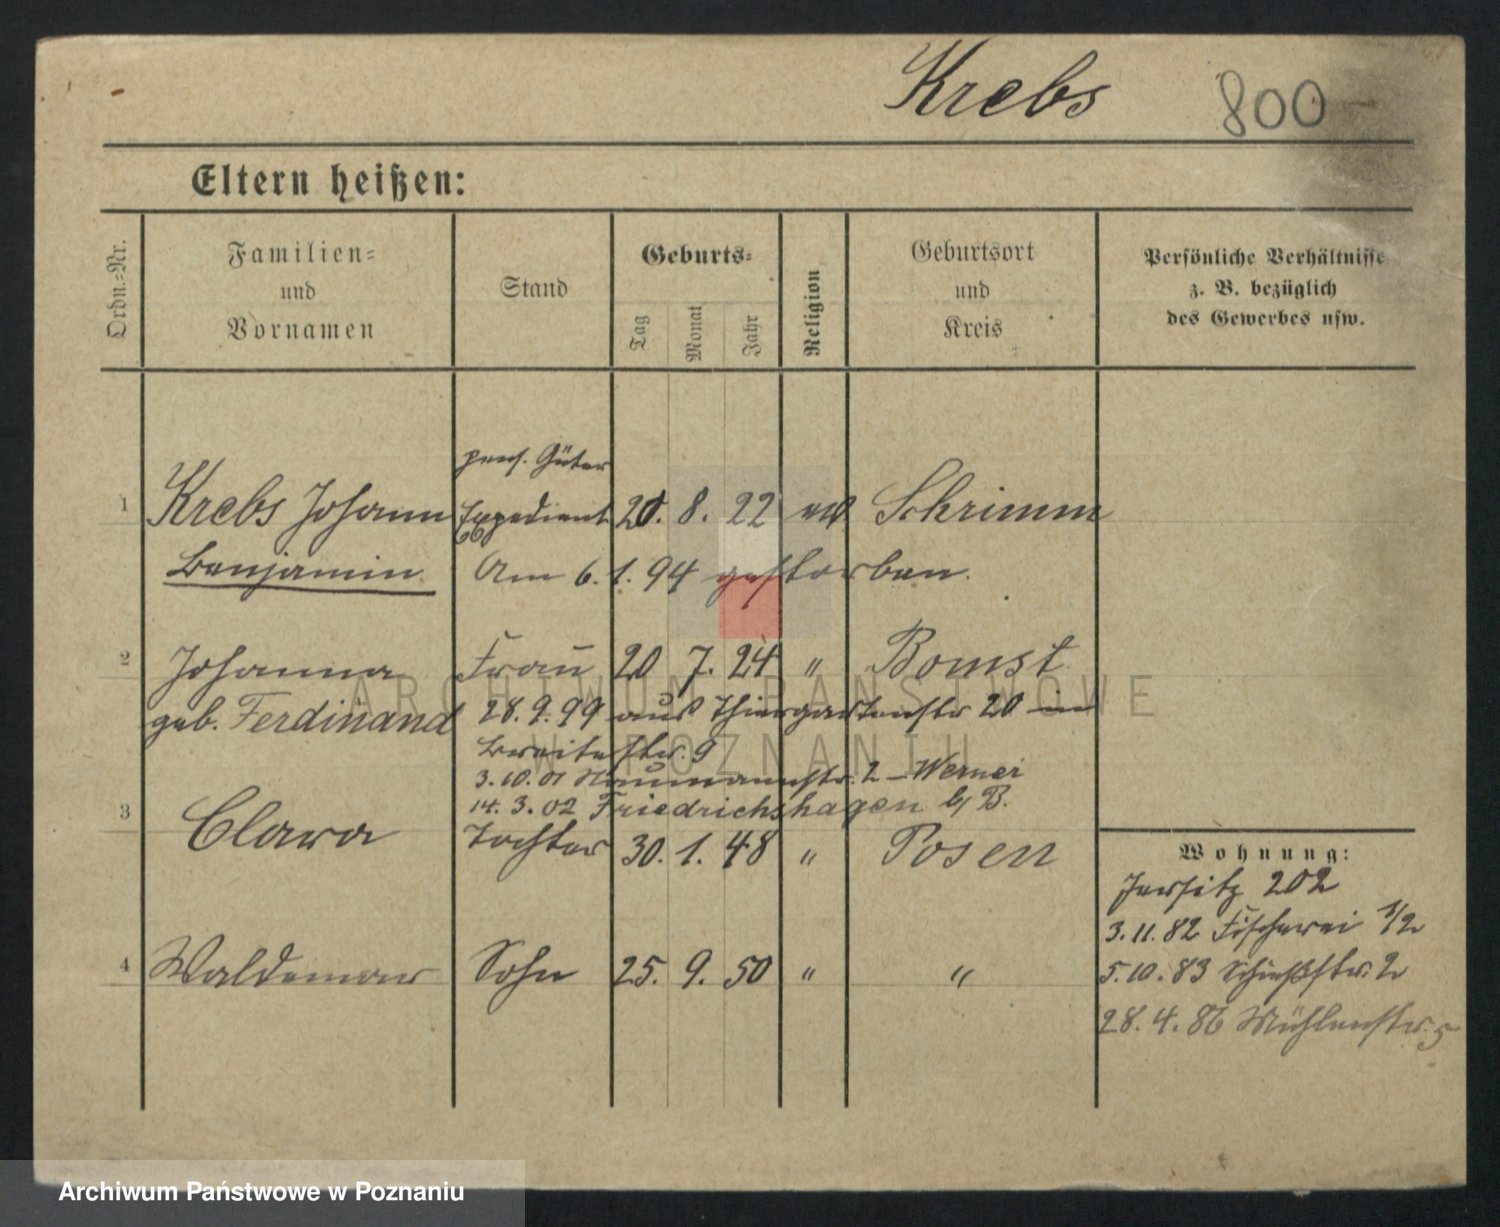 Krebs 800
Eltern heißen:
Ordn.-Nr.
Familien-
und
Vornamen
Stand
Geburts-
Tag
Monat
Jahr
Religion
Geburtsort
und
Kreis
Persönliche Verhältnisse
z. B. bezüglich
des Gewerbes usw.
pens. Güter
1 Krebs Johann Expedient 20. 8. 22 ev Schrimm
Benjamin Am 6. 1. 94 gestorben.
2 Johanna Frau 20 7. 24 " Bomst
geb. Ferdinand 28. 9. 99 aus Thiergartenstr 20 in
Breitestr. 9
3. 10. 01 Naumannstr. 2 – Werner
14. 3. 02 Friedrichshagen b/ B.
3 Clara Tochter 30. 1. 48 " Posen
Wohnung:
Jersitz 202
3. 11. 82 Fischerei 1/2
4 Waldemar Sohn 25. 9. 50 " "
5. 10. 83 Schießstr. 2
28. 4. 86 Mühlenstr. 5
ARCHIWUM PAŃSTWOWE
W POZNANIU
Archiwum Państwowe w Poznaniu